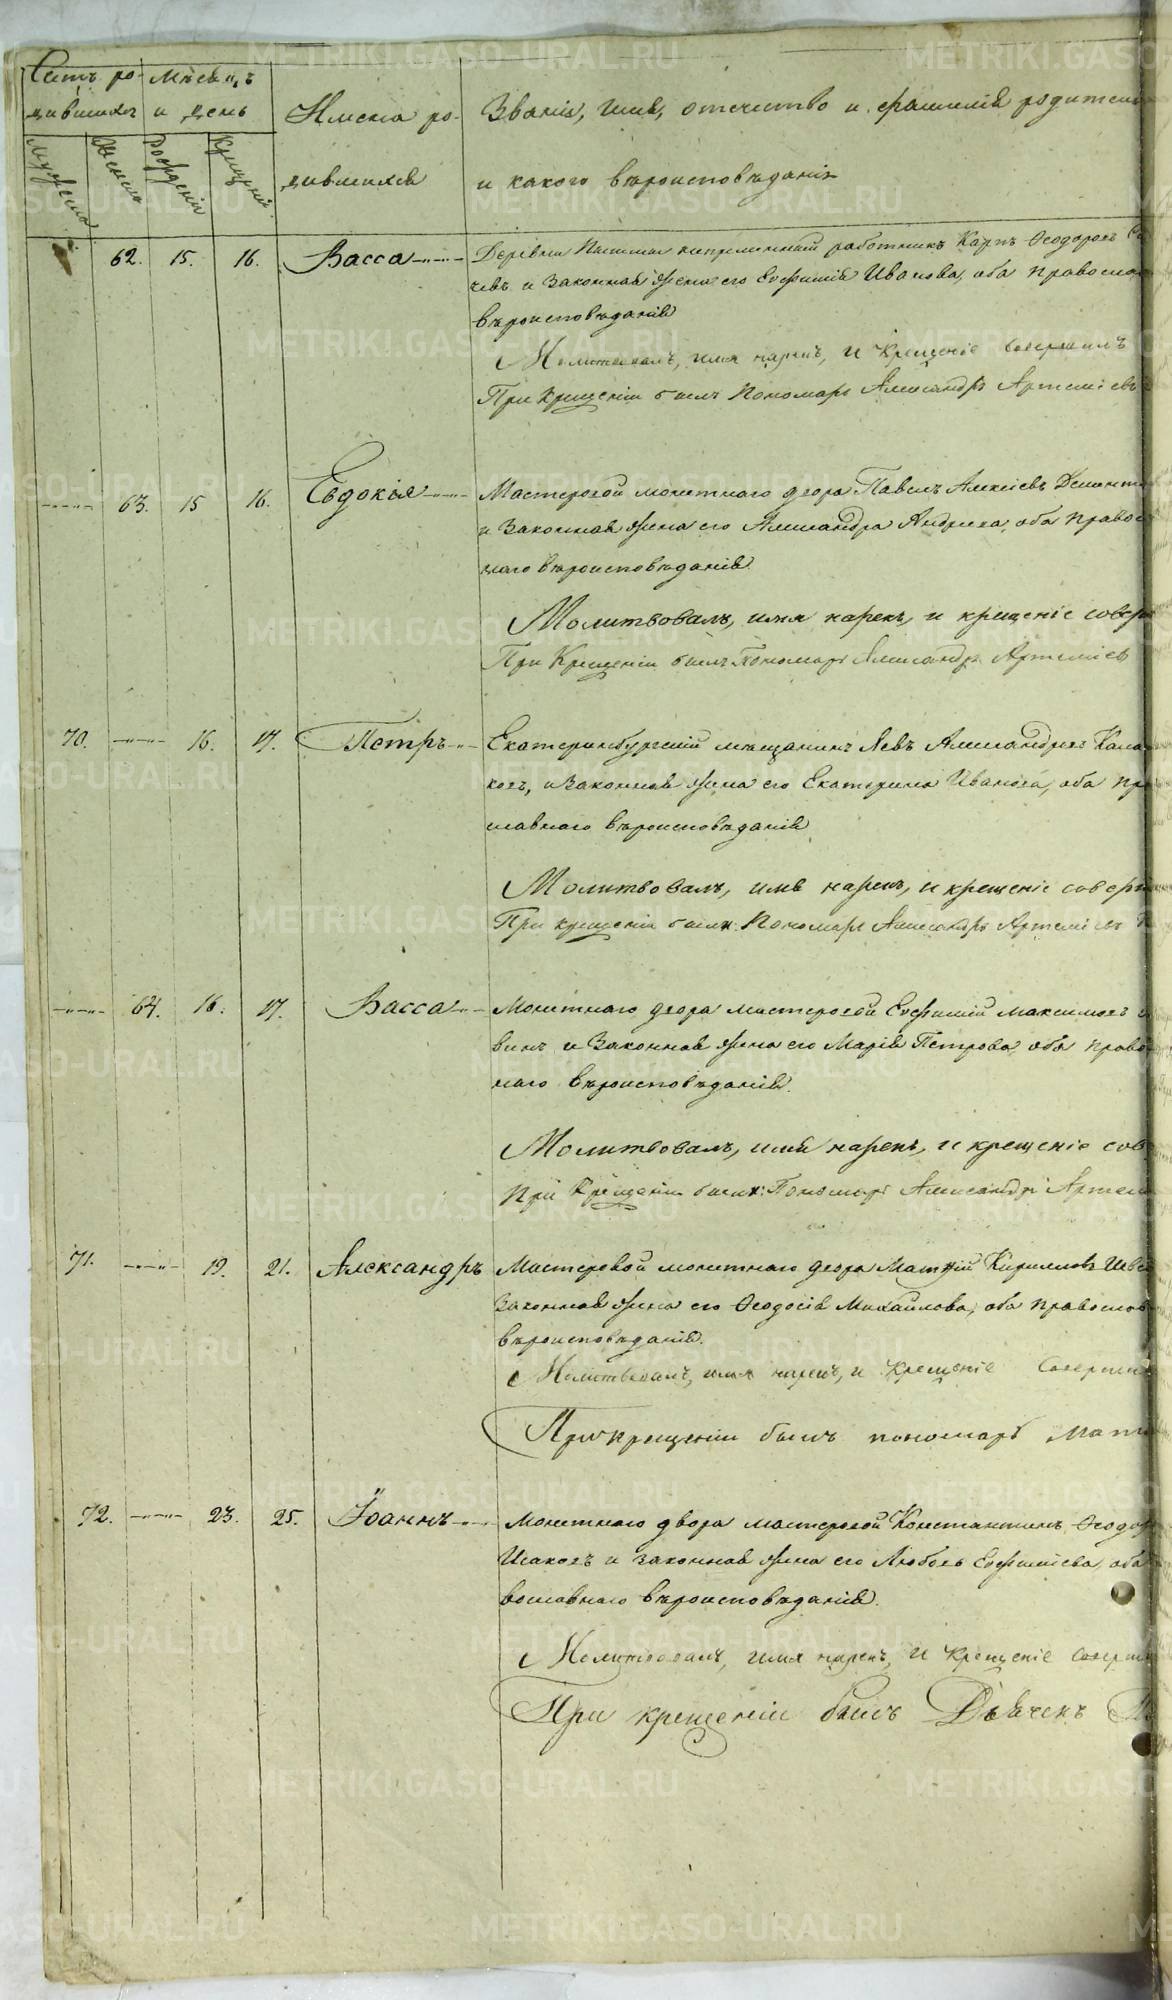 Счетъ ро- Мѣсяцъ
дившихъ и день
Имена ро- Званіе, имя, отечество и фамилія родителей
дившихся и какого вѣроисповѣданія
Мужеска Женска Рожденія Крещенія
62. 15. 16. Васса Деревни Пышмы непремѣнный работникъ Карпъ Ѳеодоровъ
чевъ и Законная жена его Евфимія Иванова, оба Правосла
вѣроисповѣданія
Молитвовалъ, имя нарекъ, и крещеніе совершилъ
При Крещеніи былъ Пономарь Александръ Артеміевъ
63. 15 16. Евдокія Мастеровой монетнаго двора Павелъ Алексѣевъ Демент
и Законная жена его Александра Андреева, оба Правос
наго вѣроисповѣданія
Молитвовалъ, имя нарекъ, и крещеніе совер
При Крещеніи былъ Пономарь Александръ Артеміев
70. 16. 17. Петръ Екатеринбургскій мѣщанинъ Левъ Александровъ
ковъ, и Законная жена его Екатерина Иванова, оба Пр
славнаго вѣроисповѣданія
Молитвовалъ, имя нарекъ, и крещеніе совер
При крещеніи былъ: Пономарь Александръ Артеміевъ
64. 16. 17. Васса Монетнаго двора мастеровой Евфимій Максимовъ
винъ и Законная жена его Марія Петрова, оба Право
наго вѣроисповѣданія.
Молитвовалъ, имя нарекъ, и крещеніе сов
При Крещеніи былъ: Пономарь Александръ Артем
71. 19. 21. Александръ Мастеровой монетнаго двора Матѳій Кирилловъ
Законная жена его Ѳеодосія Михайлова, оба Православ
вѣроисповѣданія.
Молитвовалъ, имя нарекъ, и крещеніе Соверши
При крещеніи былъ пономарь
72. 23. 25. Іоаннъ Монетнаго двора мастеровой Константинъ Ѳеодор
Исаковъ и законная жена его Любовь Евфиміева, оба
вославнаго вѣроисповѣданія.
Молитвовалъ, имя нарекъ, и крещеніе соверши
При крещеніи былъ Дьячекъ
METRIKI.GASO-URAL.RU